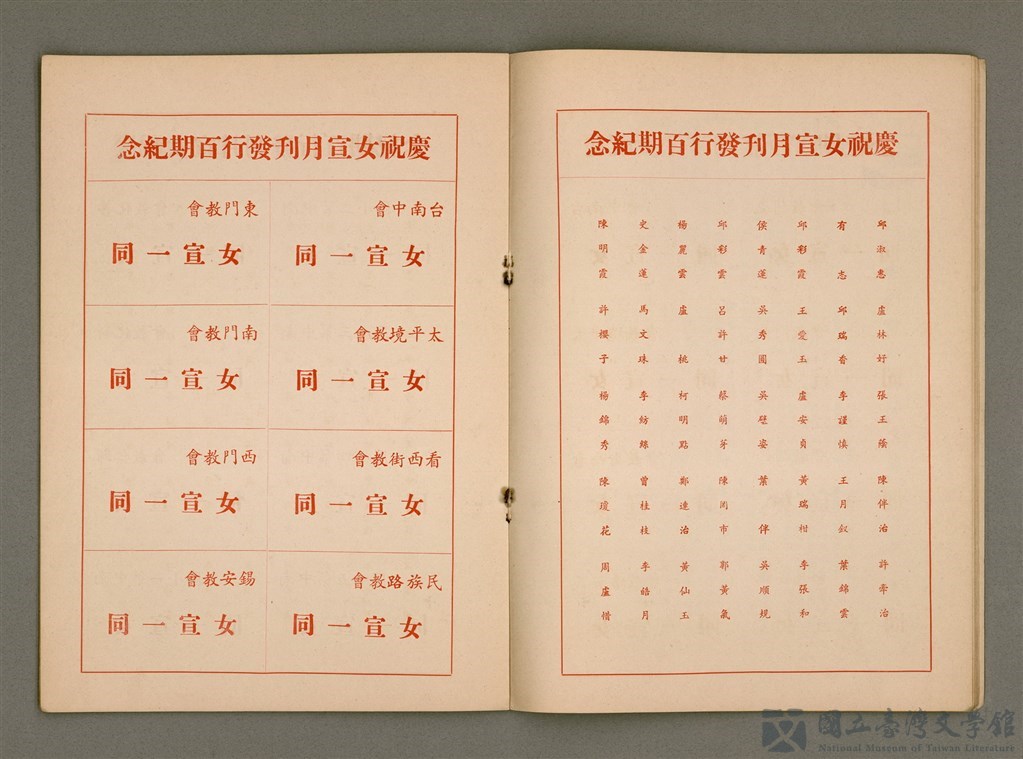 慶祝女宣月刊發行百期紀念
邱淑惠 盧林好 張王 陳伴治 許乖治
有志 邱瑞香 李謹慎 王月釵 葉錦雲
邱彩霞 王愛玉 盧安貞 黃瑞柑 李張和
侯青蓮 吳秀圓 吳 葉伴 吳順規
邱彩雲 呂許甘 蔡萌芽 陳罔市 郭黃氣
楊麗雲 盧桃 柯明點 鄭連治 黃仙玉
史金蓮 馬文珠 李紡 曾桂枝 李皓月
陳明霞 許櫻子 楊錦秀 陳瓊花 周盧惜
慶祝女宣月刊發行百期紀念
台南中會
女宣一同
東門教會
女宣一同
太平境教會
女宣一同
南門教會
女宣一同
看西街教會
女宣一同
西門教會
女宣一同
民族路教會
女宣一同
錫安教會
女宣一同
國立臺灣文學館
National Museum of Taiwan Literature